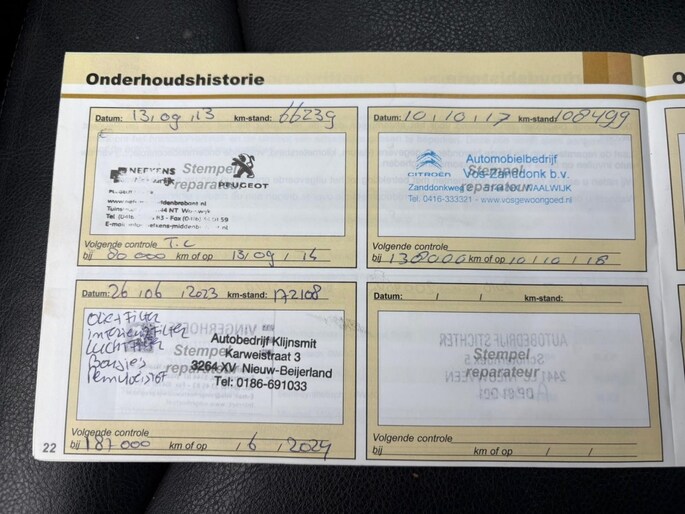 Onderhoudshistorie
Datum: 13, 09, 13 km-stand: 66239
NEFKENS
Stempel
reparateur
PEUGEOT
Volgende controle T.C
bij 80 000 km of op 13, 09, 14
Datum: 10, 10, 17 km-stand: 108499
CITROËN
Automobielbedrijf
Vos-Zanddonk b.v.
Stempel
reparateur
Zanddonkweg WAALWIJK
Tel. 0416-333321 - www.vosgewoongoed.nl
Volgende controle
bij 138000 km of op 10, 10, 18
Datum: 26, 06, 2023 km-stand: 172108
oliefilter
interieurfilter
Luchtfilter
bougies
remvloeistof
Stempel
reparateur
Autobedrijf Klijnsmit
Karweistraat 3
3264 XV Nieuw-Beijerland
Tel: 0186-691033
Volgende controle
bij 187 000 km of op , 6, 2024
Datum: / / km-stand:
Stempel
reparateur
Volgende controle
bij km of op / /
22